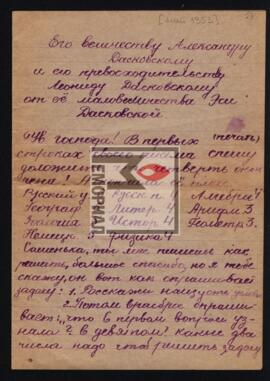 [май 1953]
Его величеству Александру
Дасковскому
и его превосходительству
Леониду Дасковскому
от её маловеличества Эси
Дасковской
господа! В первых
строках своего письма спешу
доложить четверть окон
чена!
Русский у Русск п Алгебра 4
Географ Литер 4 Арифм 3.
Геология Истор 4 Геометр 3.
Немецк 3 Физика 4
Сашенька, ты мне пишешь как
решать, большое спасибо, но я тебе
скажу, он вот как спрашивает
задачу: 1. Расскажи наизусть
2. Потом вразброс спраши
вает: "что в первом вопросе уз
нала? в девятом? какие два
числа надо чтобы решить задачу
МЕМОРИАЛ